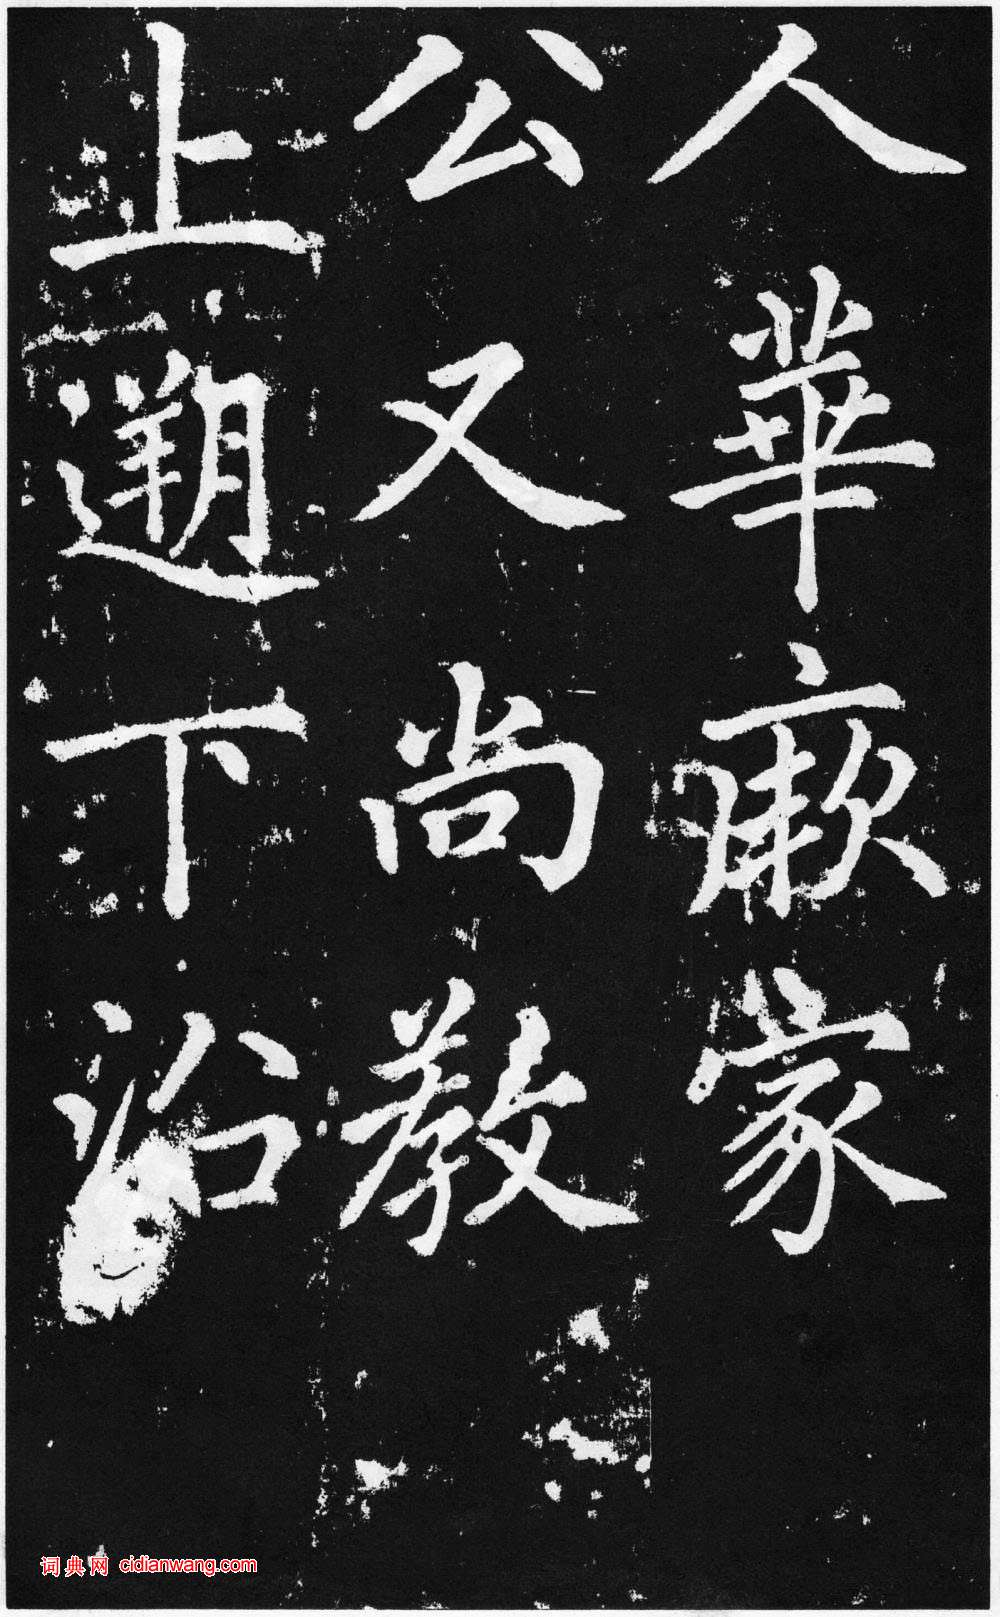 人華厥家
公又尚教
上遡下沿
词典网 cidianwang.com